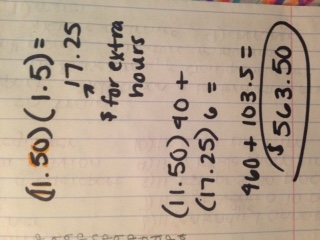 (11.50)(1.5)=
17.25
$ for extra
hours
(11.50)40+
(17.25)6=
460+103.5=
$563.50